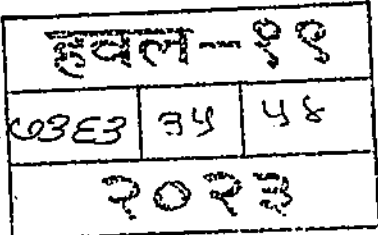 हवल-१९
७३६३ ३५ ५४
२०२३